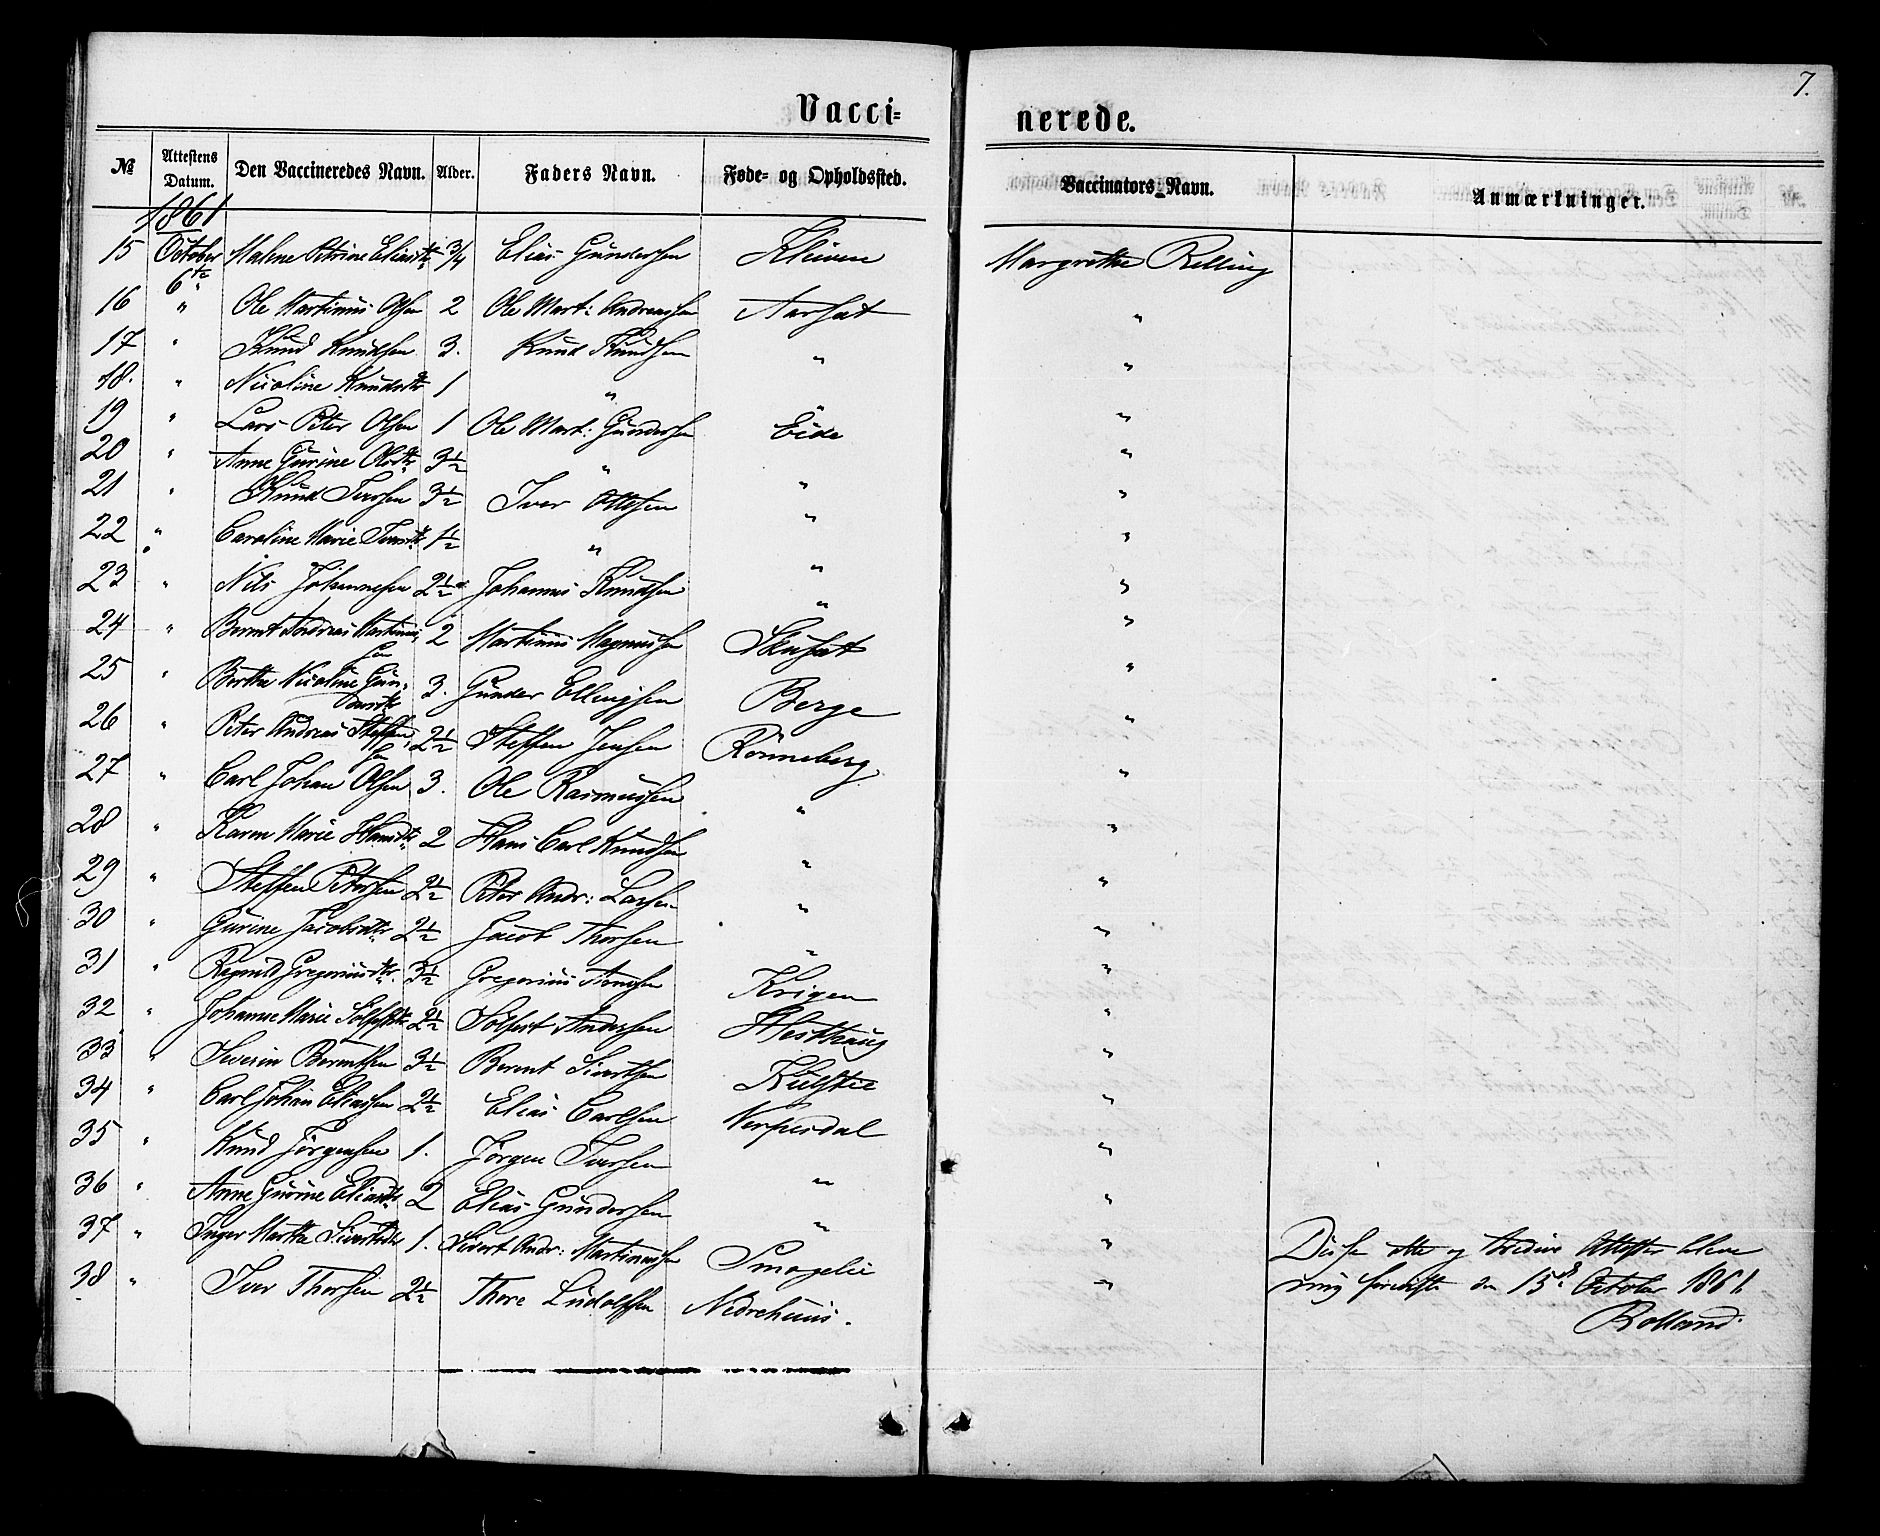 7.
Vacci= nerede.
№ Attestens Datum. Den Vaccineredes Navn. Alder. Faders Navn. Føde- og Opholdssted. Vaccinators Navn. Anmærkninger.
1861
15 October 6te Malene Petrine Eliasdtr 3/4 Elias Gundersen Kleven Margrethe Relling
16 " Ole Martinus Olsen 2 Ole Mart: Andreassen Aarsæt "
17 " Knud Knudsen 3. Knud Knudsen " "
18. " Nicoline Knudsdtr 1 " " "
19 " Lars Peter Olsen 1 Ole Mart: Gundersen Eide "
20 " Anne Gurine Olsdtr 3½ " " "
21 " Knud Iversen 3½ Iver Ottesen " "
22 " Caroline Marie Iversdtr 1½ " " "
23 " Nils Johannesen 2½ Johannes Knudsen " "
24 " Bernt Andreas Martinussen 2 Martinus Magnussen Skusæt "
25 " Berthe Nicoline Gundersdtr 3. Gunder Ellingsen Berge "
26 " Peter Andreas Steffensen 2½ Steffen Jensen Rönneberg "
27 " Carl Johan Olsen 3. Ole Rasmussen " "
28 " Karen Marie Hansdtr 2 Hans Carl Knudsen " "
29 " Steffen Petersen 2½ Peter Andr: Larsen " "
30 " Gurine Jacobsdtr 2½ Jacob Thorsen " "
31 " Ragnild Gregoriusdtr 3½ Gregorius Knudsen Krigen "
32 " Johanne Marie Sölfestdtr 2½ Sölfest Andersen Hesthaug "
33 " Severin Berntsen 3½ Bernt Sivertsen "
34 " Carl Johan Eliassen 2½ Elias Carlsen "
35 " Knud Jörgensen 1. Jörgen Iversen " "
36 " Anne Gurine Eliasdtr 2 Elias Gundersen " "
37 " Inger Marthe Sivertsdtr 1. Sivert Andr: Martinussen Smagelie "
38 " Iver Thorsen 2½ Thore Ludolfsen Nedrehuus. "
Disse otte og tredive Attester bleve
mig foreviste den 15d October 1861.
Bolland.